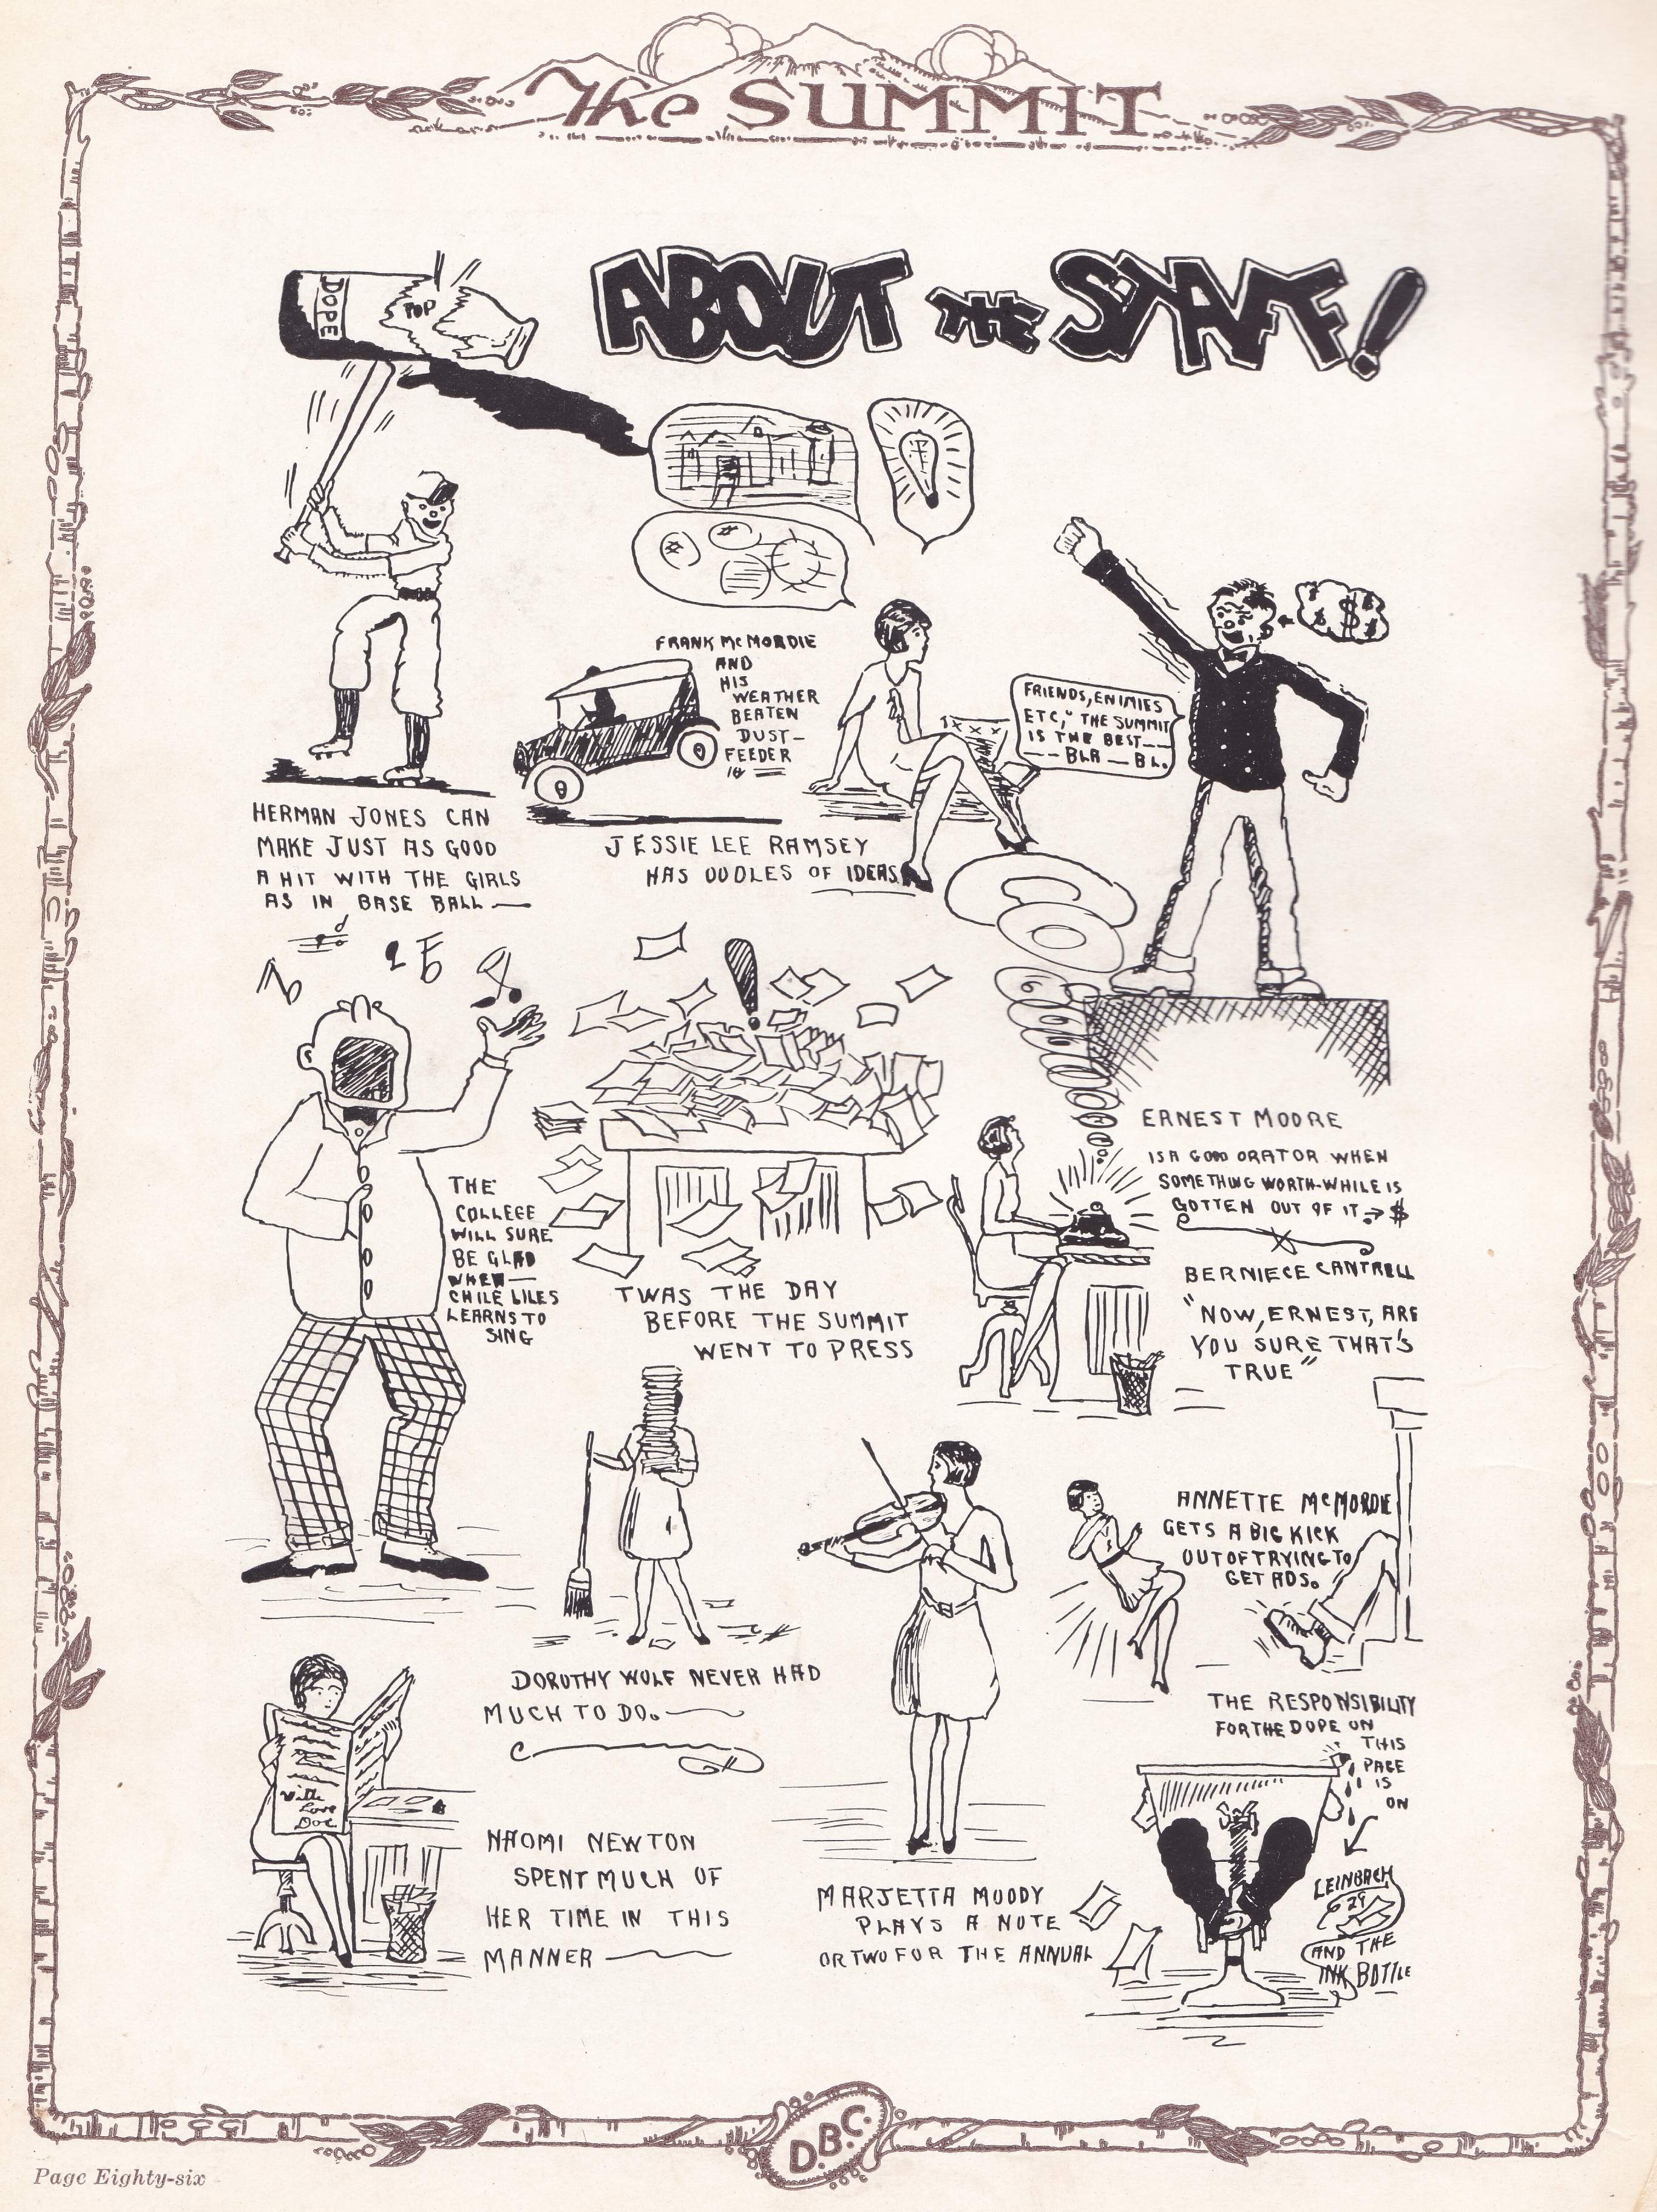 The SUMMIT
ABOUT THE STAFF!
DOPE
POP
FRANK McMORDIE
AND
HIS
WEATHER
BEATEN
DUST-
FEEDER
FRIENDS, ENIMIES
ETC," THE SUMMIT
IS THE BEST——
—— BLA — BL.
$ $ $
HERMAN JONES CAN
MAKE JUST AS GOOD
A HIT WITH THE GIRLS
AS IN BASE BALL—
JESSIE LEE RAMSEY
HAS OODLES OF IDEAS
!
THE
COLLEGE
WILL SURE
BE GLAD
WHEN—
CHILE LILES
LEARNS TO
SING
TWAS THE DAY
BEFORE THE SUMMIT
WENT TO PRESS
ERNEST MOORE
IS A GOOD ORATOR WHEN
SOMETHING WORTH-WHILE IS
GOTTEN OUT OF IT → $
BERNIECE CANTRELL
"NOW, ERNEST, ARE
YOU SURE THAT'S
TRUE"
ANNETTE McMORDIE
GETS A BIG KICK
OUT OF TRYING TO
GET ADS.
DOROTHY WOLF NEVER HAD
MUCH TO DO.
With
Love
Doc
NAOMI NEWTON
SPENT MUCH OF
HER TIME IN THIS
MANNER
MARJETTA MOODY
PLAYS A NOTE
OR TWO FOR THE ANNUAL
THE RESPONSIBILITY
FOR THE DOPE ON
THIS
PAGE
IS
ON
LEINBACH
29
AND THE
INK BOTTLE
D.B.C.
Page Eighty-six